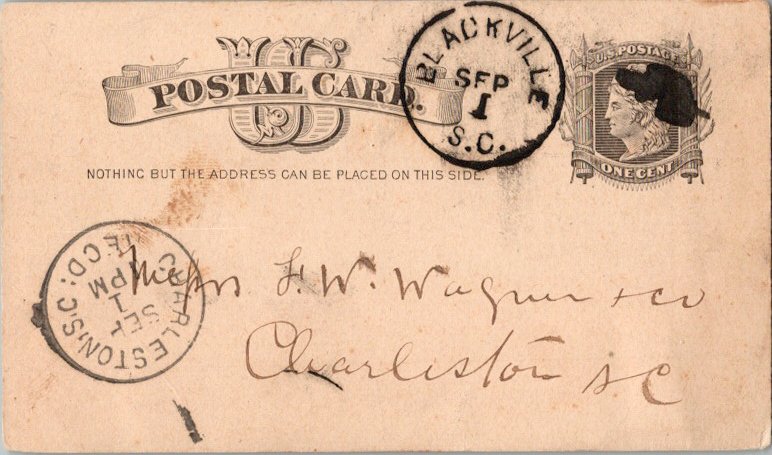 US
POSTAL CARD.
NOTHING BUT THE ADDRESS CAN BE PLACED ON THIS SIDE.
BLACKVILLE
SEP
1
S.C.
U.S. POSTAGE
ONE CENT
CHARLESTON, S.C.
SEP
1
PM
REC'D.
Messrs F. W. Wagner & co
Charleston S C